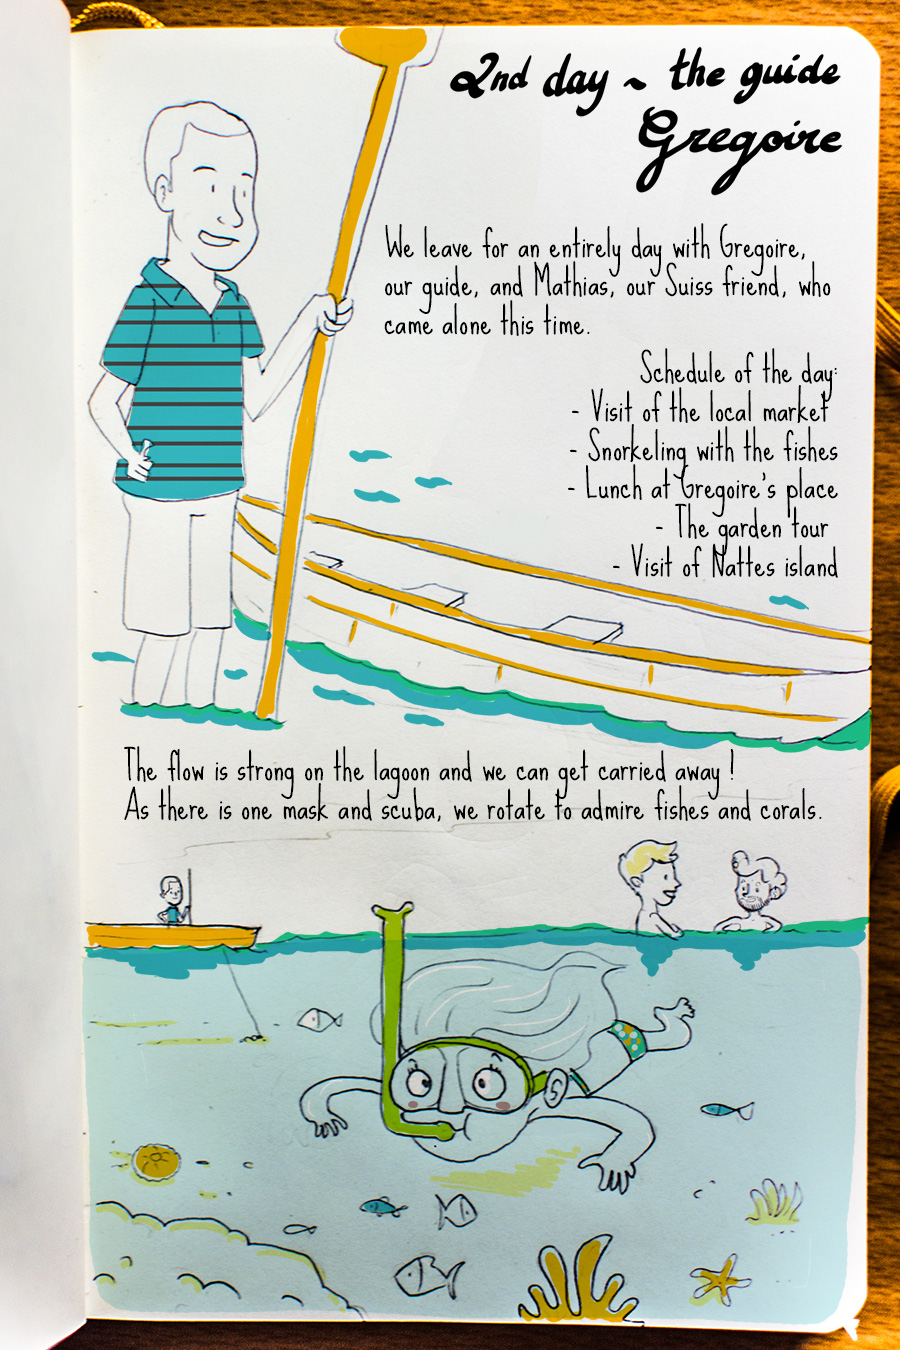 2nd day ~ the guide
Gregoire
We leave for an entirely day with Gregoire,
our guide, and Mathias, our Suiss friend, who
came alone this time.
Schedule of the day:
- Visit of the local market
- Snorkeling with the fishes
- Lunch at Gregoire's place
- The garden tour
- Visit of Nattes island
The flow is strong on the lagoon and we can get carried away !
As there is one mask and scuba, we rotate to admire fishes and corals.